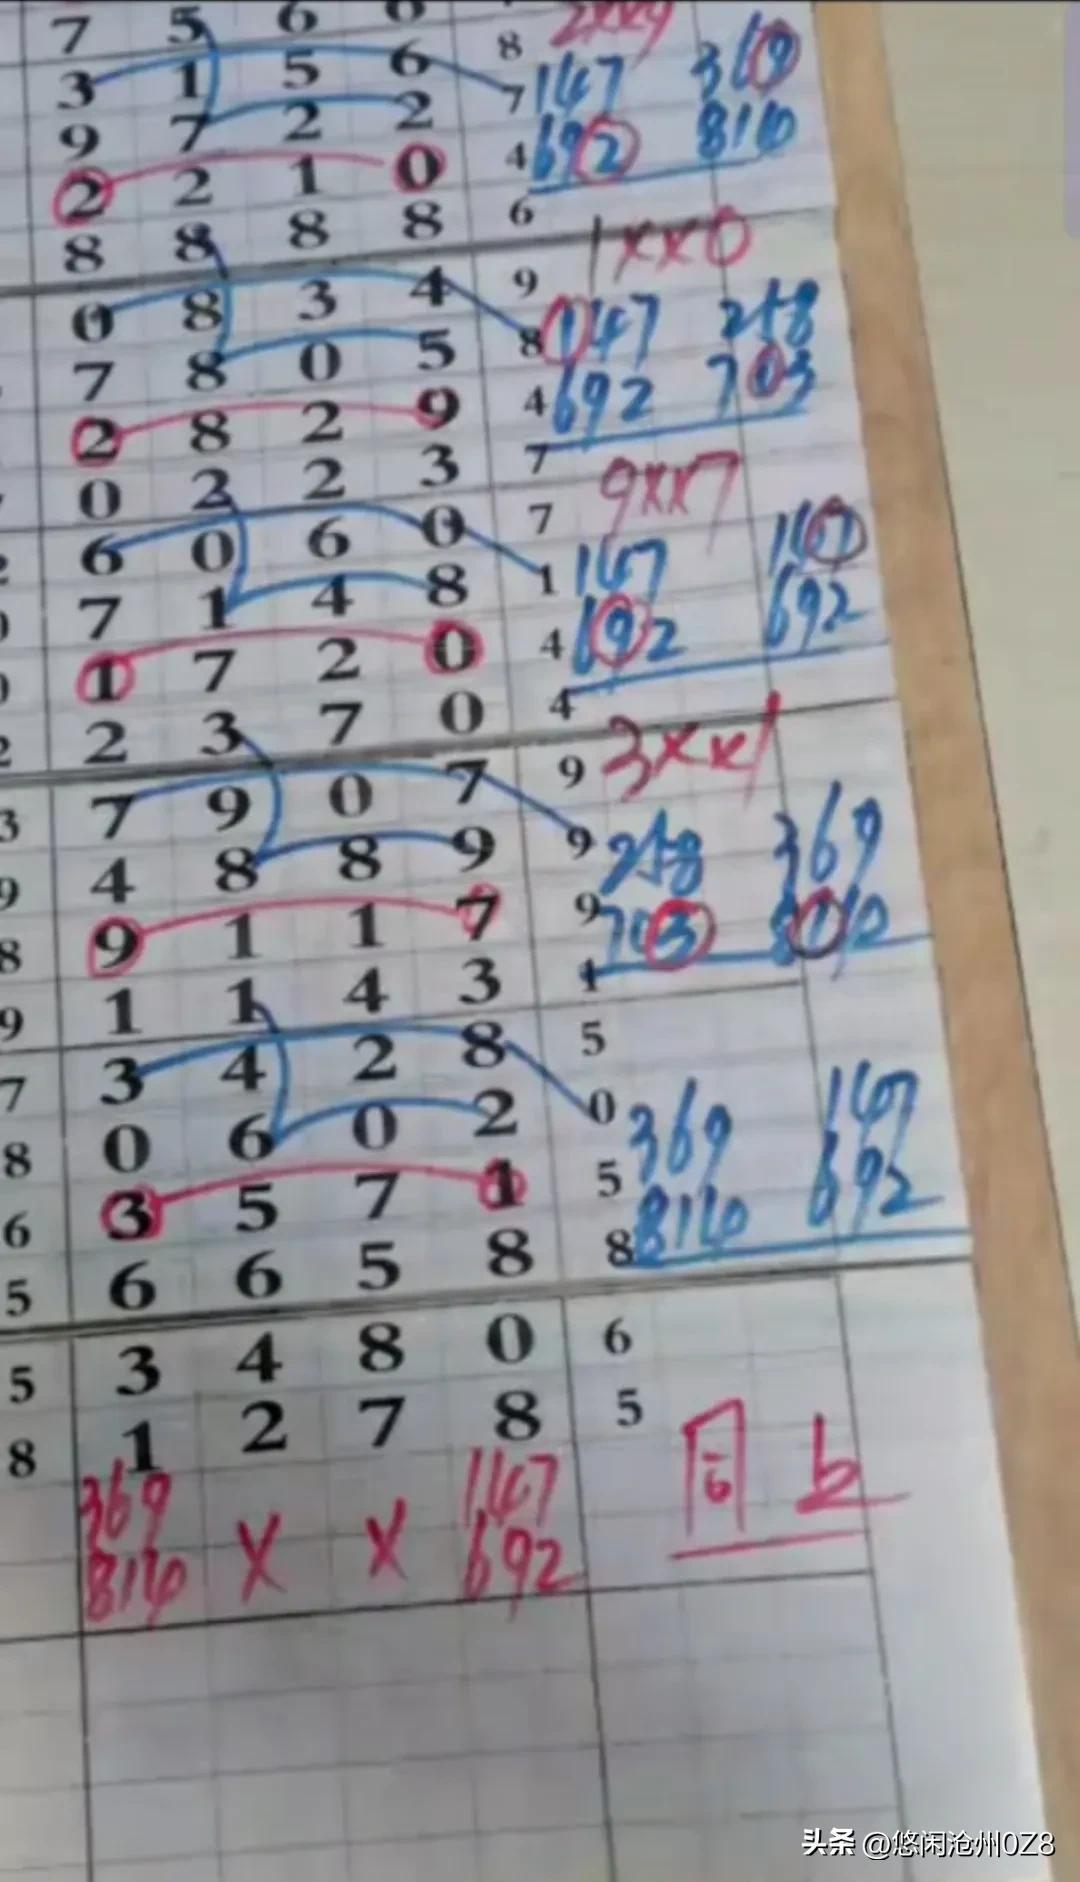 7 5 6 8
3 1 5 6 7 147 369
9 7 2 2 4 692 8110
2 2 1 0
8 8 8 8 6
1xx0
0 8 3 4 9
7 8 0 5 8 147 258
2 8 2 9 4 692 703
0 2 2 3 7
9xx7
6 0 6 0 7
7 1 4 8 1 147 147
1 7 2 0 4 692 692
2 2 3 7 0 4
3xx1
3 7 9 0 7 9
9 4 8 8 9 9 258 369
8 9 1 1 7 9 703
9 1 1 4 3 1
7 3 4 2 8 5
8 0 6 0 2 0 369 147
6 3 5 7 1 5 8110 692
5 6 6 5 8 8
5 3 4 8 0 6
8 1 2 7 8 5
369 x x 147
8110 692
头条 @悠闲沧州0Z8